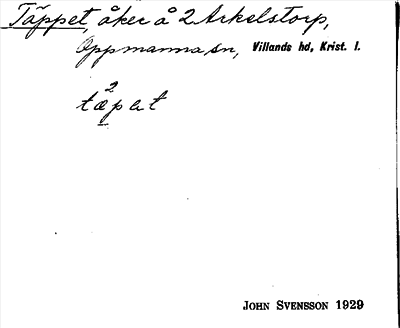 Täppet, åker å 2 Arkelstorp,
Oppmanna sn, Villands hd, Krist. l.
2
tæpət
JOHN SVENSSON 1929